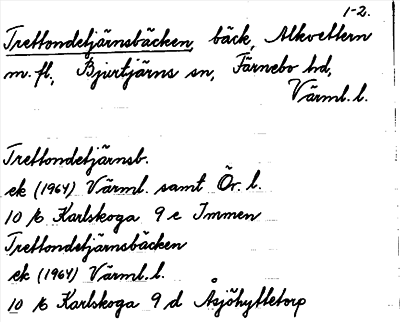 1-2.
Trettondetjärnsbäcken, bäck, Alkvettern
m.fl, Bjurtjärns sn, Färnebo hd,
Värml. l.
Trettondetjärnsb.
ek (1964) Värml. samt Ör. l.
10 E Karlskoga 9 e Immen
Trettondetjärnsbäcken
ek (1964) Värml. l.
10 E Karlskoga 9 d Åsjöhyttetorp